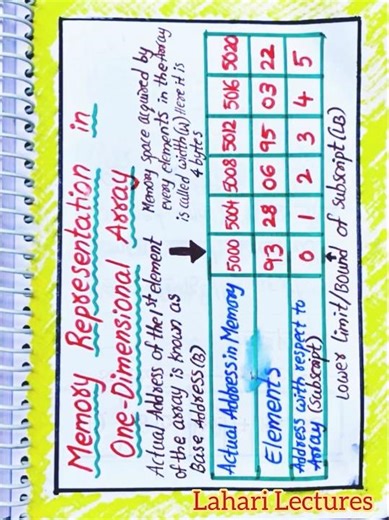 Memory Representation in
One-Dimensional Array
Actual Address of the 1st element
of the array is known as
Base Address(B)
Memory space acquired by
every elements in the Array
is called width(W) Here it is
4 bytes
Actual Address in Memory 5000 5004 5008 5012 5016 5020
Elements 93 28 06 95 03 22
Address with respect to
Array (Subscript) 0 1 2 3 4 5
Lower Limit/Bound of Subscript(LB)
Lahari Lectures